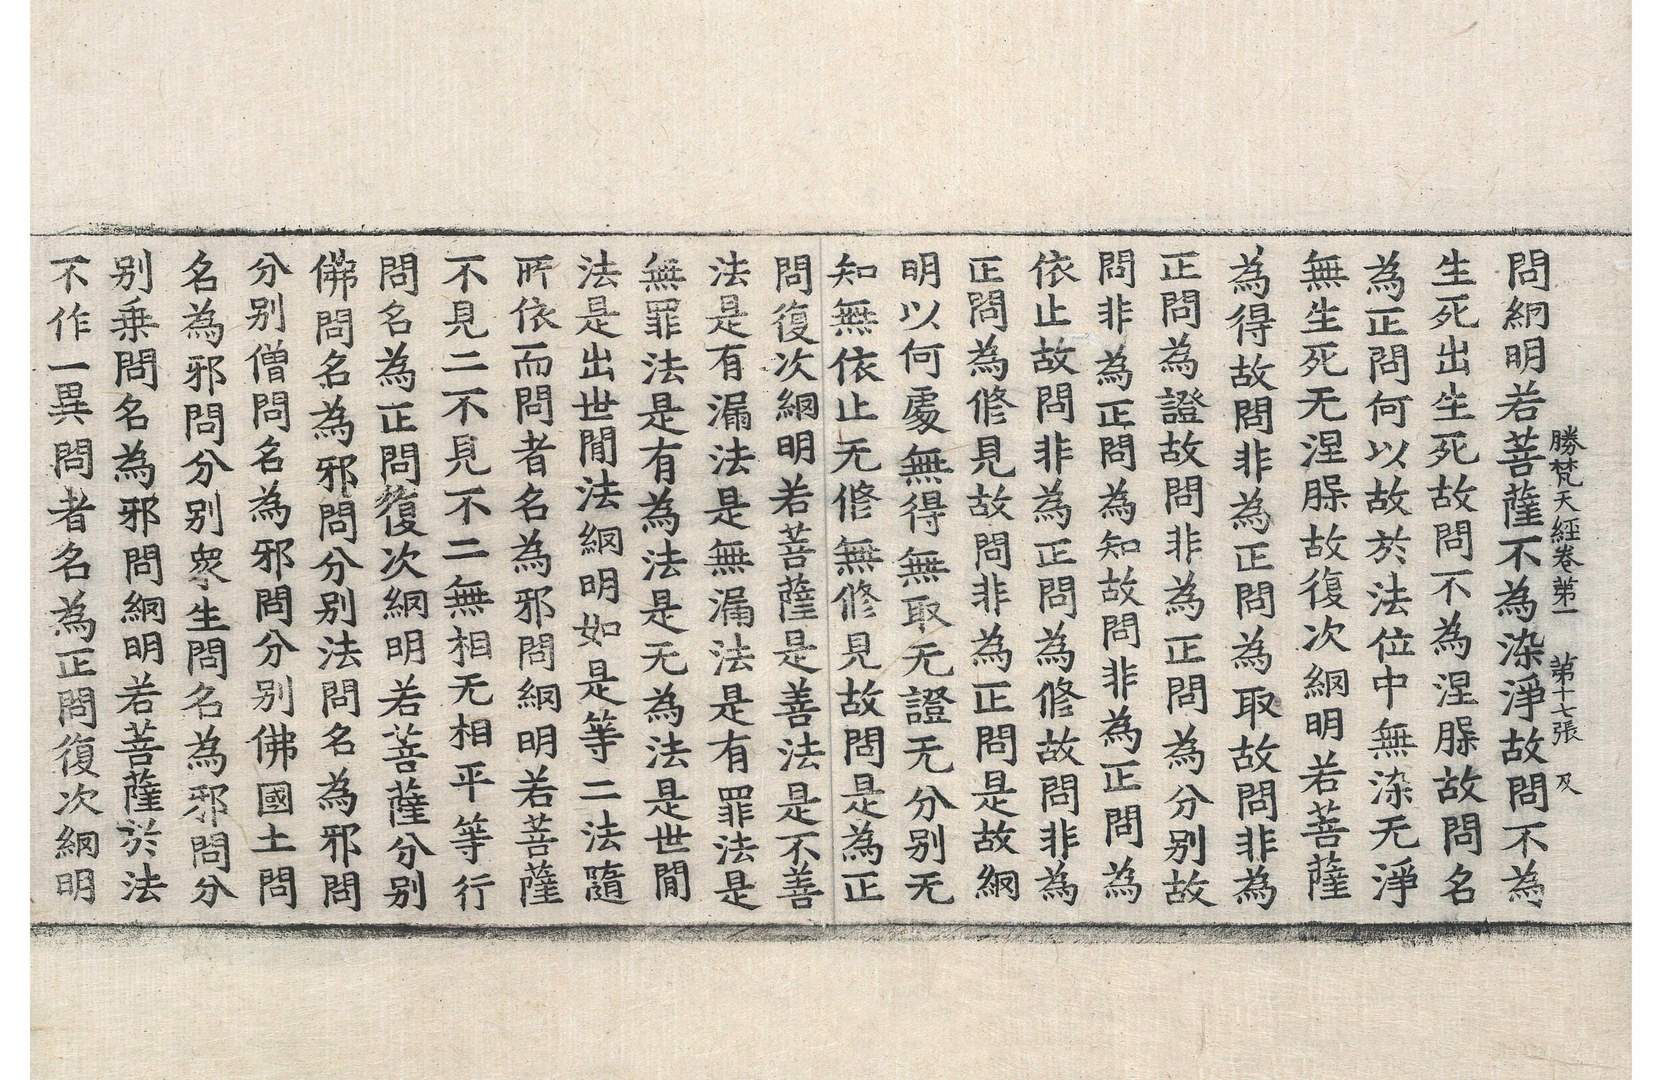 勝梵天經卷第一　第十七張　及
問網明若菩薩不為染淨故問不為
生死出生死故問不為涅槃故問名
為正問何以故於法位中無染无淨
無生死无涅槃故復次網明若菩薩
為得故問非為正問為取故問非為
正問為證故問非為正問為分别故
問非為正問為知故問非為正問為
依止故問非為正問為修故問非為
正問為修見故問非為正問是故網
明以何處無得無取无證无分别无
知無依止无修無修見故問是為正
問復次網明若菩薩是善法是不善
法是有漏法是無漏法是有罪法是
無罪法是有為法是无為法是世間
法是出世間法網明如是等二法隨
所依而問者名為邪問網明若菩薩
不見二不見不二無相无相平等行
問名為正問復次網明若菩薩分别
佛問名為邪問分别法問名為邪問
分别僧問名為邪問分别佛國土問
名為邪問分别衆生問名為邪問分
别乗問名為邪問網明若菩薩於法
不作一異問者名為正問復次網明